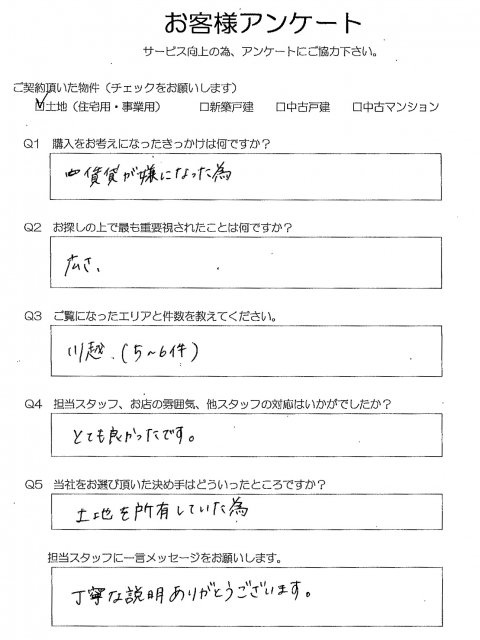 お客様アンケート
サービス向上の為、アンケートにご協力下さい。
ご契約頂いた物件（チェックをお願いします）
☑土地（住宅用・事業用） □新築戸建 □中古戸建 □中古マンション
Q1 購入をお考えになったきっかけは何ですか？
賃貸が嫌になった為
Q2 お探しの上で最も重要視されたことは何ですか？
広さ、
Q3 ご覧になったエリアと件数を教えてください。
川越、（5～6件）
Q4 担当スタッフ、お店の雰囲気、他スタッフの対応はいかがでしたか？
とても良かったです。
Q5 当社をお選び頂いた決め手はどういったところですか？
土地を所有していた為
担当スタッフに一言メッセージをお願いします。
丁寧な説明ありがとうございます。